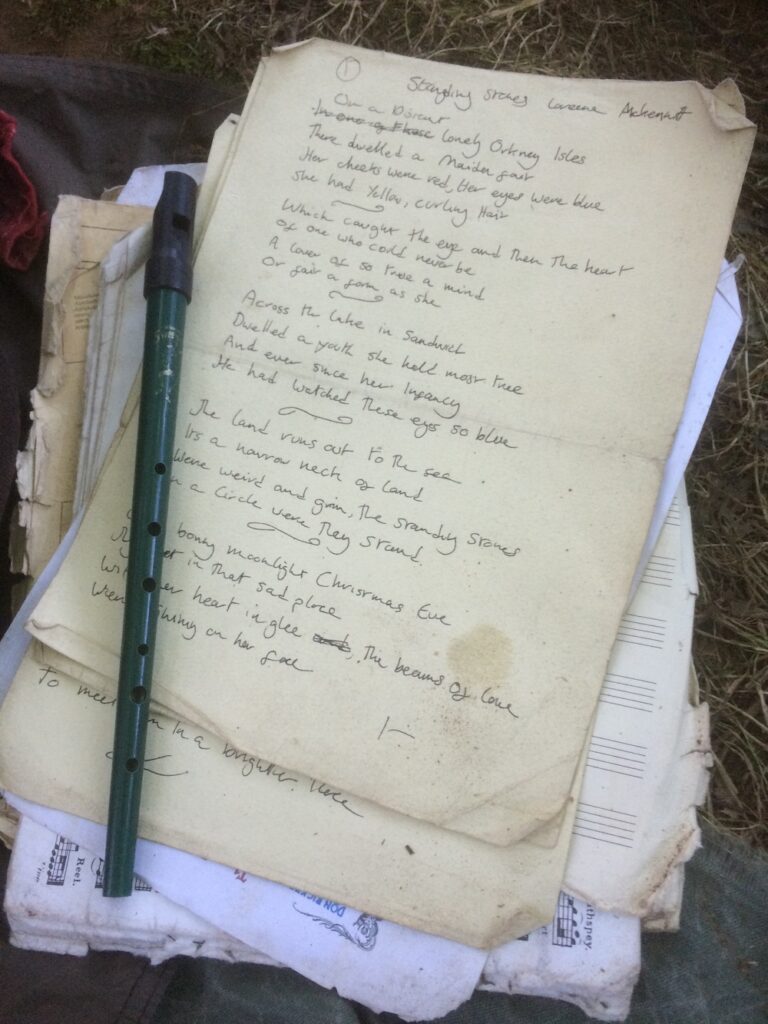 ①
Standing Stones Loreena McKennitt
On a Distant
In one of these lonely Orkney Isles
There dwelled a Maiden fair
Her cheeks were red, Her eyes were blue
She had Yellow, Curling Hair
Which caught the eye and Then The heart
of one who could never be
A lover of so true a mind
Or fair a form as she
Across the lake in Sandwick
Dwelled a youth she held most true
And ever since her Infancy
He had watched These eyes so blue
The land runs out to the sea
Its a narrow neck of land
Were weird and grim, the standing stones
a Circle were They stand.
bonny moonlight Christmas Eve
in That sad place
her heart in glee The beams of love
on her face
To meet in a brighter place
Reel.
DON RICKE
thspey.